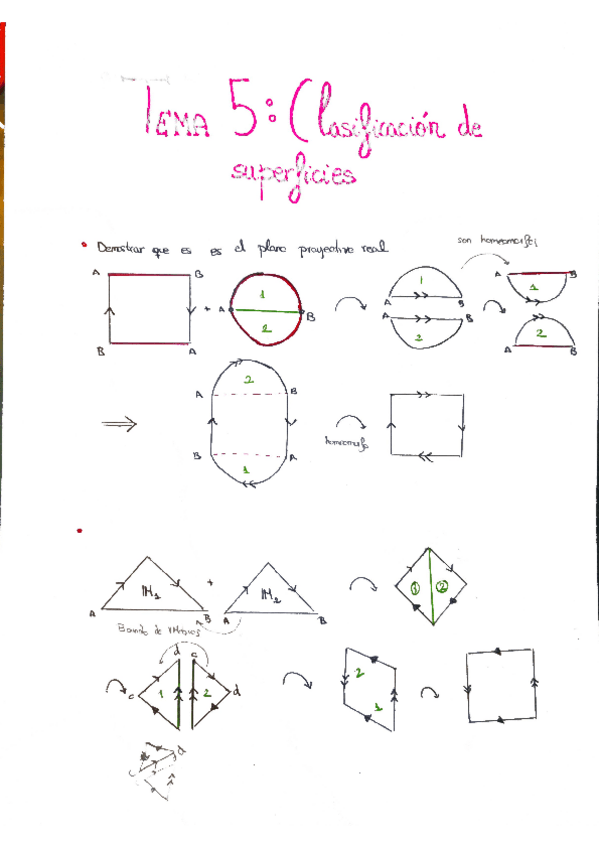 TEMA 5: Clasificación de
superficies
• Demostrar que es es el plano proyectivo real
son homeomorfos
A B
B A
+
A 1 B
2
1
A B
A B
2
A B
1
2
A B
⇒
2
A B
B A
1
homeomorfo
•
M1 + M2
A B A B
① ②
d c
c 1 2 d
2
1
c d